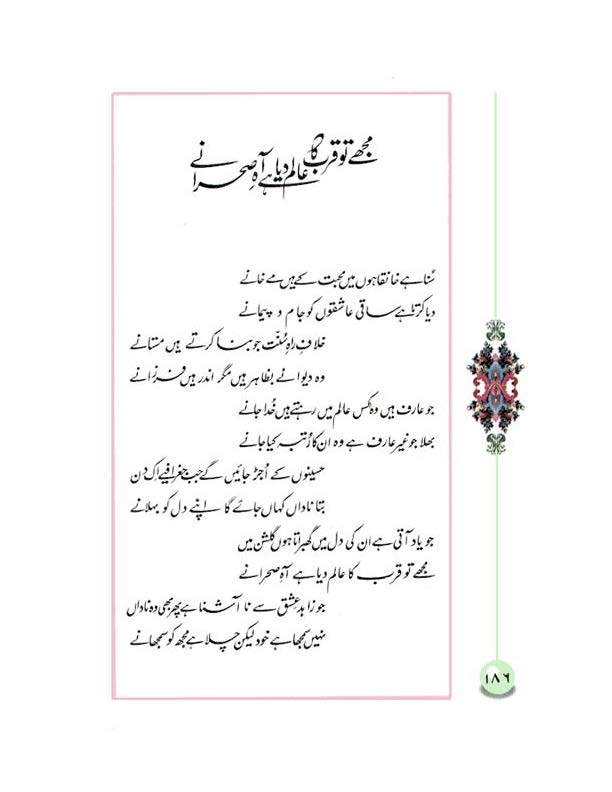 مجھے تو قرب کا عالم دیا ہے آہِ صحرا نے
سُنا ہے خانقاہوں میں محبت کے ہیں مے خانے
دیا کرتا ہے ساقی عاشقوں کو جام و پیمانے
خلافِ راہِ سُنّت جو بنا کرتے ہیں مستانے
وہ دیوانے بظاہر ہیں مگر اندر ہیں فرزانے
جو عارف ہیں وہ کس عالم میں رہتے ہیں خُدا جانے
بھلا جو غیر عارف ہے وہ ان کا رُتبہ کیا جانے
حسینوں کے اُجڑ جائیں گے جب جغرافیے اِک دن
بتا ناداں کہاں جائے گا اپنے دل کو بہلانے
جو یاد آتی ہے ان کی دل میں گھبراتا ہوں گلشن میں
مجھے تو قرب کا عالم دیا ہے آہِ صحرا نے
جو زاہد عشق سے نا آشنا ہے پھر بھی وہ ناداں
نہیں سمجھا ہے خود لیکن چلا ہے مجھ کو سمجھانے
۱۸۶